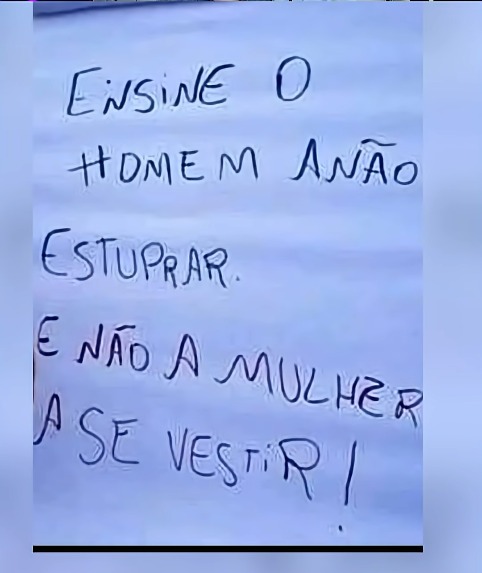 ENSINE O
HOMEM ANÃO
ESTUPRAR.
E NÃO A MULHER
A SE VESTIR!